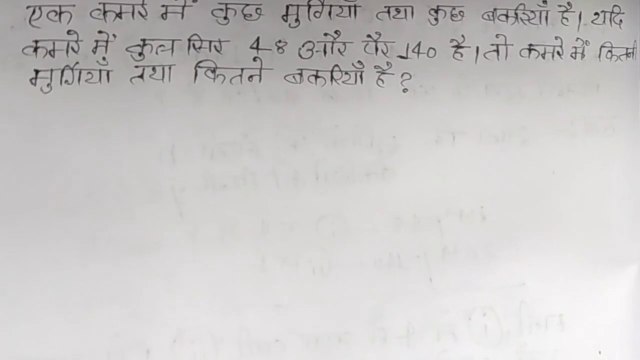 एक कमरे में कुछ मुर्गियाँ तथा कुछ बकरियाँ है। यदि
कमरे में कुल सिर 48 और पैर 140 है। तो कमरे में कितने
मुर्गियाँ तथा कितने बकरियाँ है?